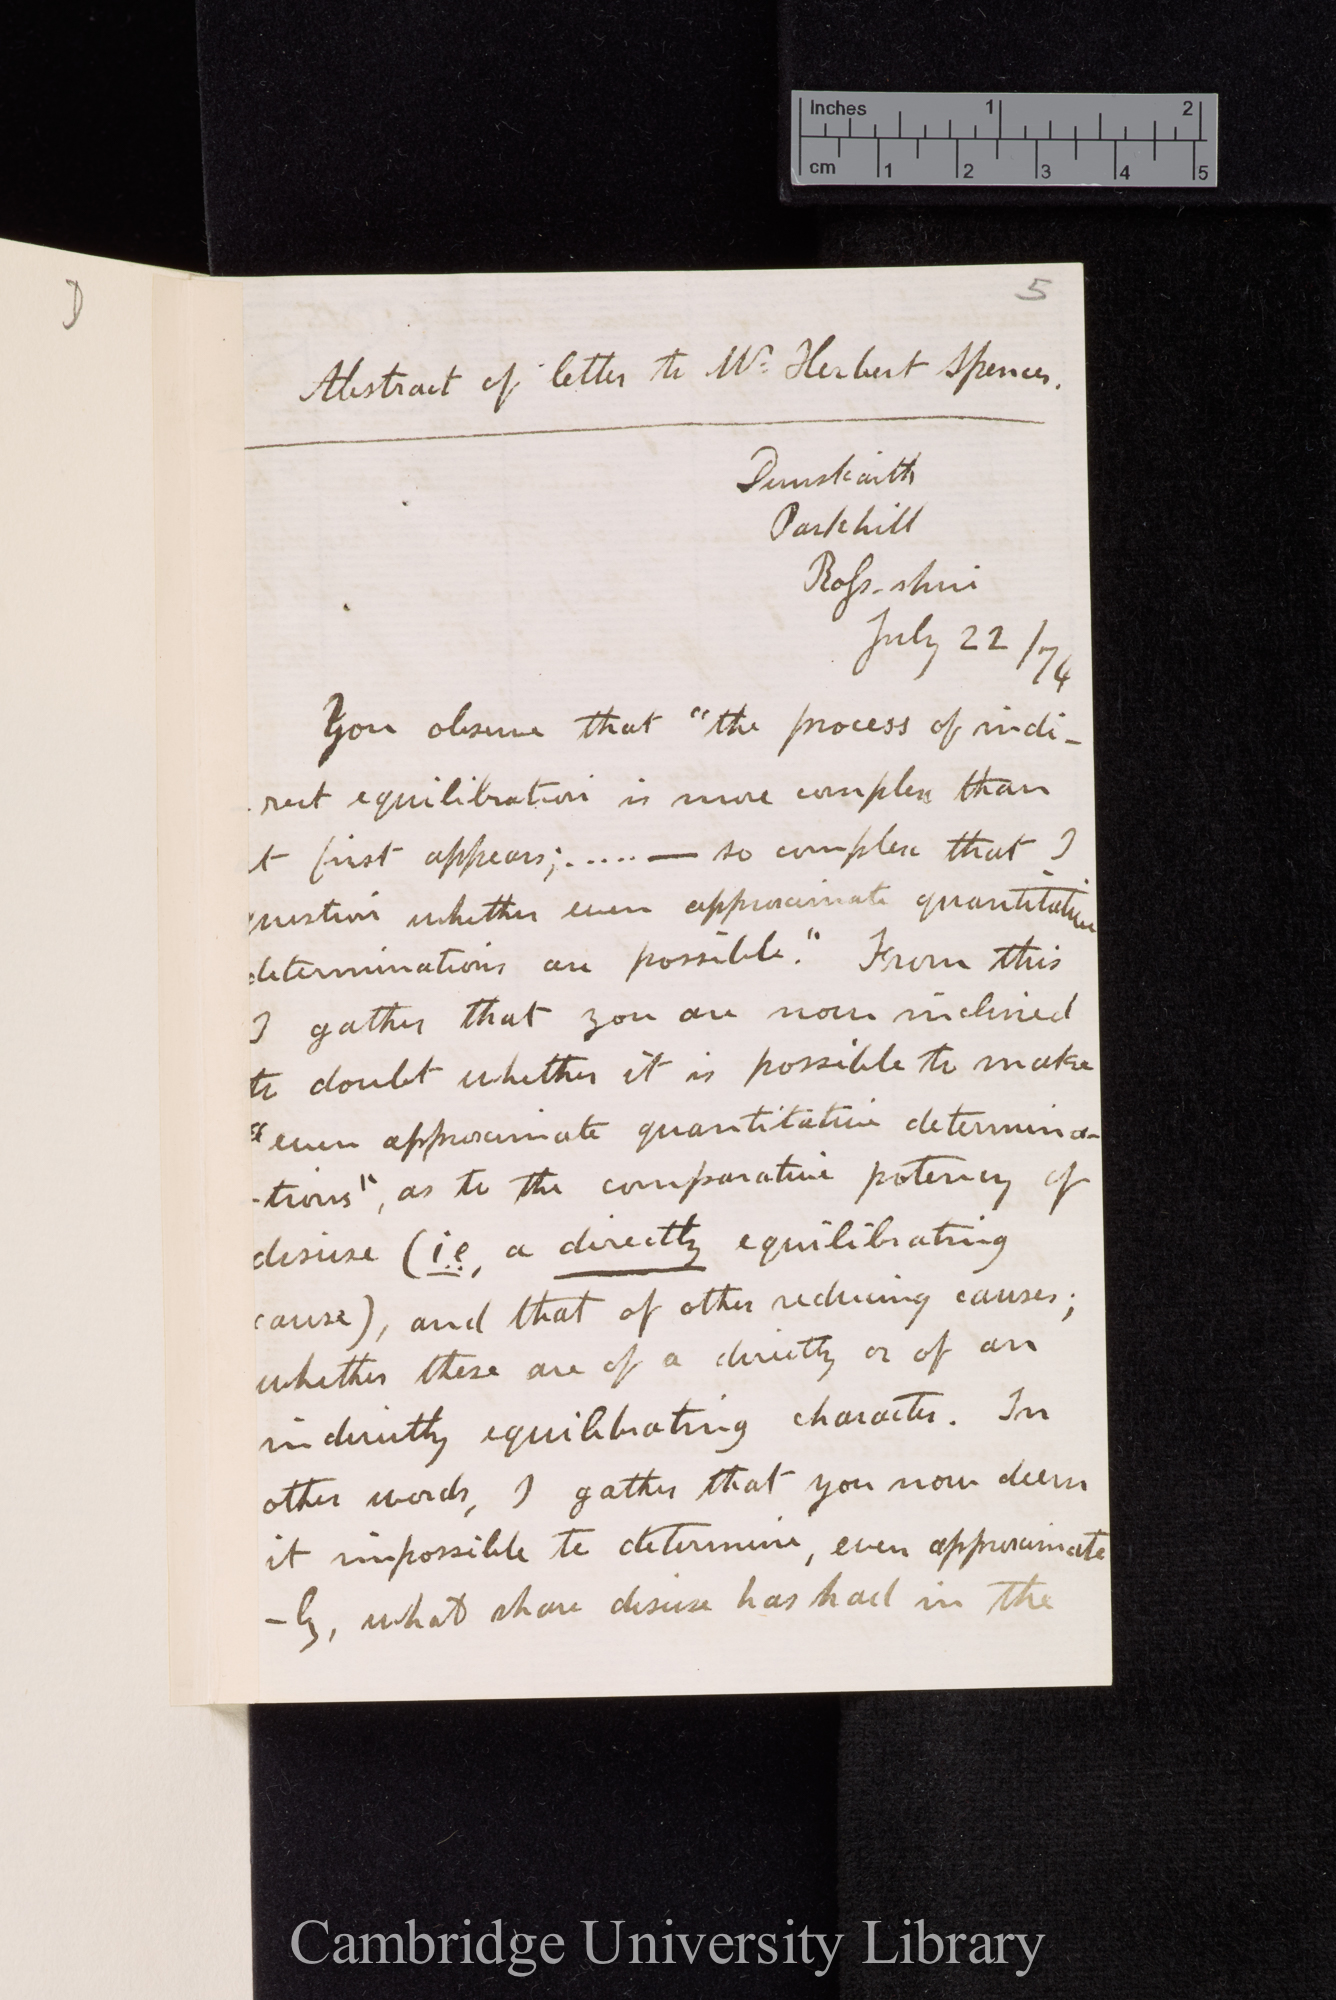 Inches 1 2
cm 1 2 3 4 5
D
5
Abstract of letter to Mr. Herbert Spencer.
Dunskaith
Parkhill
Ross-shire
July 22/74
You observe that "the process of indi-
-rect equilibration is more complex than
t first appears; ..... — so complex that I
question whether even approximate quantitative
determinations are possible." From this
I gather that you are now inclined
to doubt whether it is possible to make
"even approximate quantitative determina-
-tions", as to the comparative potency of
disuse (i.e, a directly equilibrating
cause), and that of other reducing causes;
whether these are of a directly or of an
indirectly equilibrating character. In
other words, I gather that you now deem
it impossible to determine, even approximate
-ly, what share disuse has had in the
Cambridge University Library